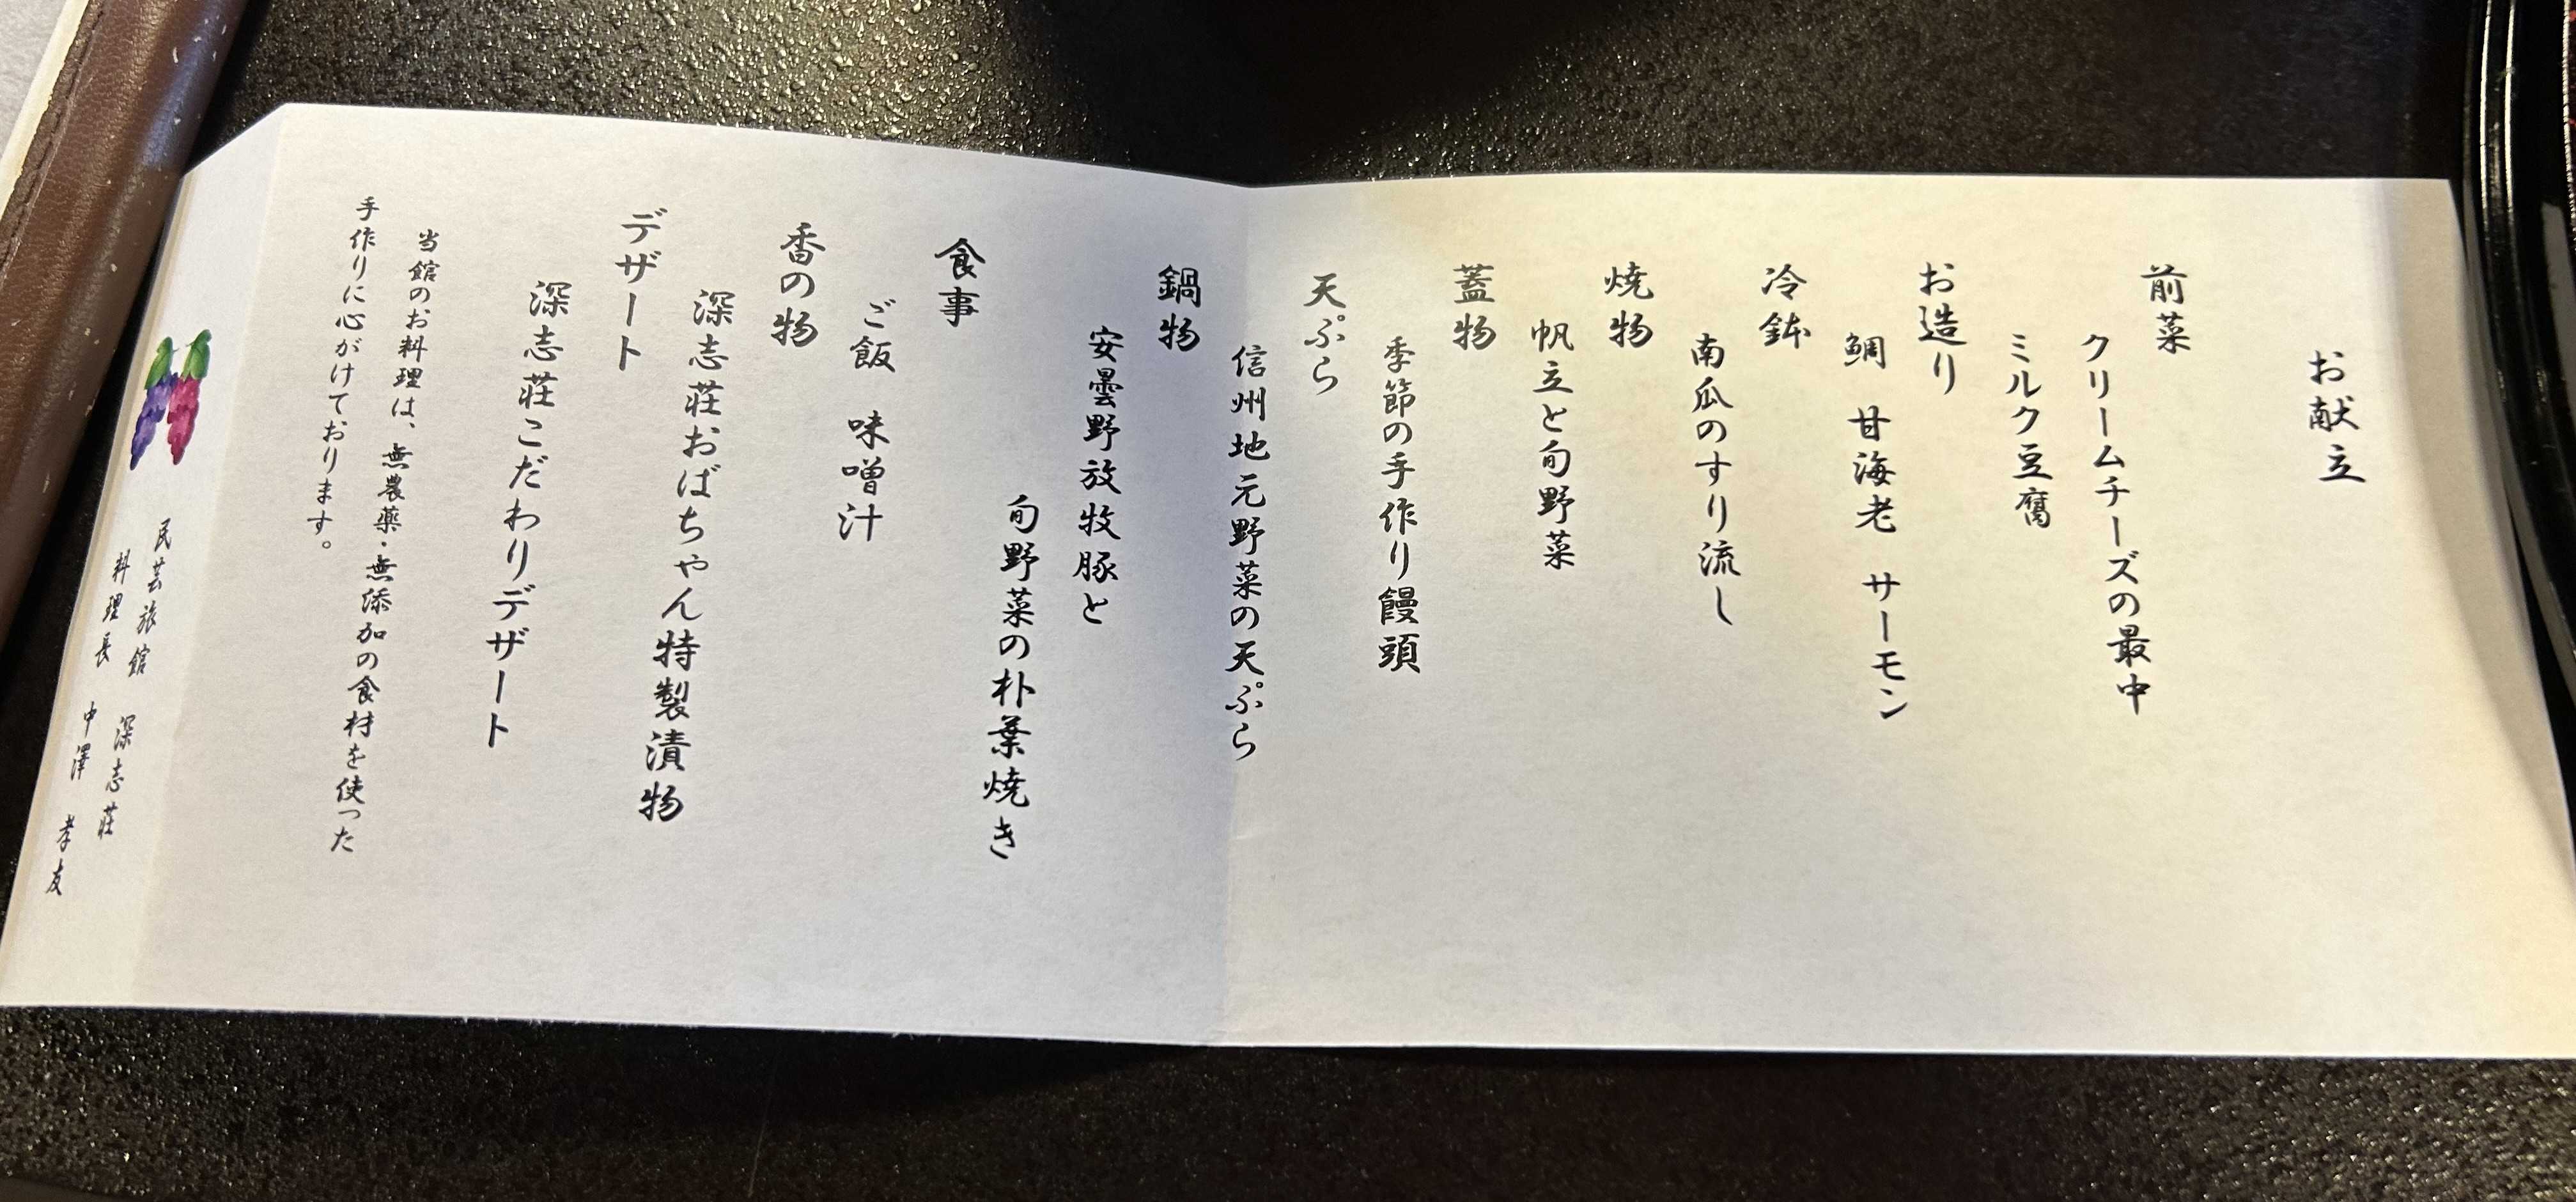 お献立
前菜
クリームチーズの最中
ミルク豆腐
お造り
鯛　甘海老　サーモン
冷鉢
南瓜のすり流し
焼物
帆立と旬野菜
蓋物
季節の手作り饅頭
天ぷら
信州地元野菜の天ぷら
鍋物
安曇野放牧豚と
旬野菜の朴葉焼き
食事
ご飯　味噌汁
香の物
深志荘おばちゃん特製漬物
デザート
深志荘こだわりデザート
当館のお料理は、無農薬・無添加の食材を使った
手作りに心がけております。
民芸旅館　深志荘
料理長　中澤　孝友